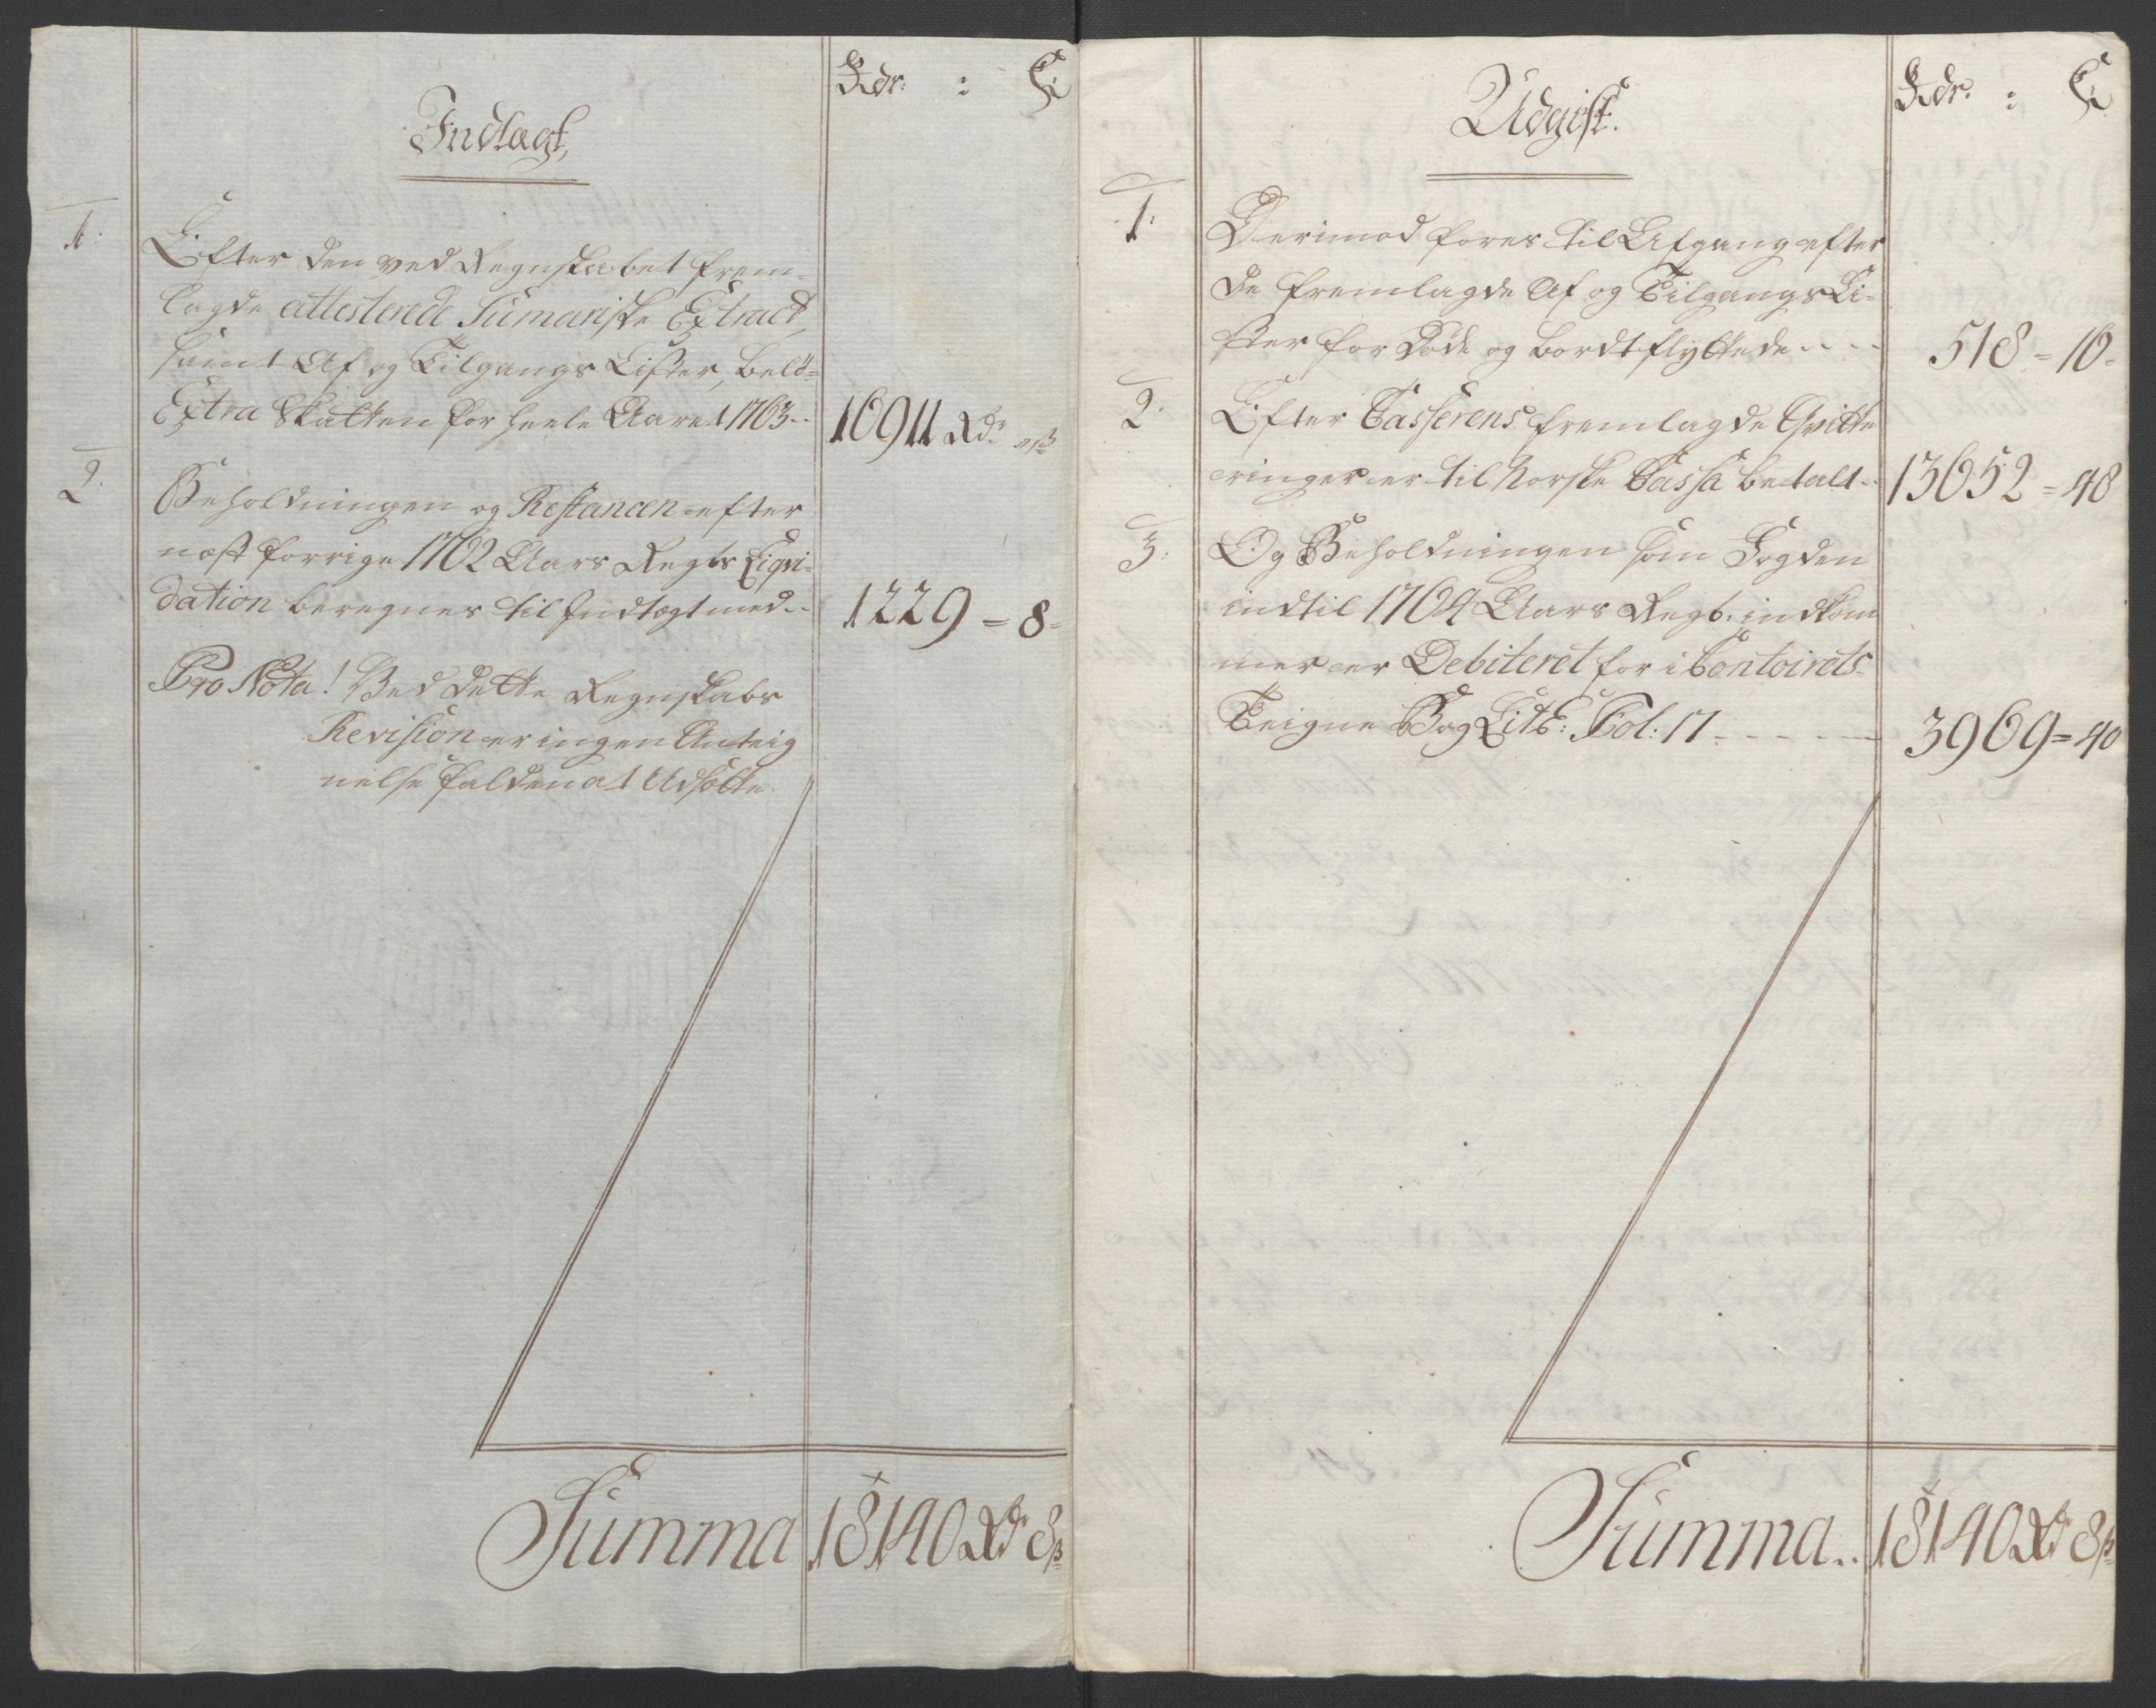 Rdr: : ß
Indtægt,
1. Efter den ved Regnskabet frem-
lagde attesterede Sumariske Extract,
samt Af og Tilgangs Lister, belø-
Extra Skatten for heele Aaret 1763.. 16911 Rdr "ß
2. Beholdningen og Restancen efter
næst forrige 1762 Aars Regbs Liqvi-
dation beregnes til Indtægt med.. 1229 = 8-
Pro Nota! Ved dette Regnskabs
Revision er ingen Anteig
nelse falden at Udsætte
Summa 18140 Rdr 8ß
Rdr. : ß
Udgift.
1. Derimod føres til Afgang efter
de fremlagde Af og Tilgangs Li-
ster for Døde og bordtflyttede.... 518 = 16-
2. Efter Casserens fremlagde Qvitte
ringer er til Norske Cassa betalt.. 13652 = 48
3. Og Beholdningen som Fogden
indtil 1764 Aars Regb: indkom
mer er Debiteret for i Contoirets-
Teigne Bog Litr E: Fol: 17 - - - - - 3969 = 40
Summa.. 18140 Rdr 8ß